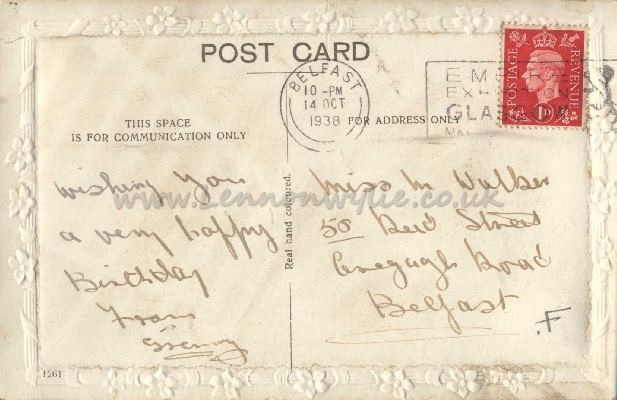 POST CARD
BELFAST
10 - PM
14 OCT
1938
EMPIRE
GLA
POSTAGE REVENUE
1D
THIS SPACE
IS FOR COMMUNICATION ONLY
FOR ADDRESS ONLY
wishing you
a very happy
Birthday
From
Real hand coloured.
Miss M. Walker
50 Street
Cregagh Road
Belfast
F
1261
www.Lennonwylie.co.uk